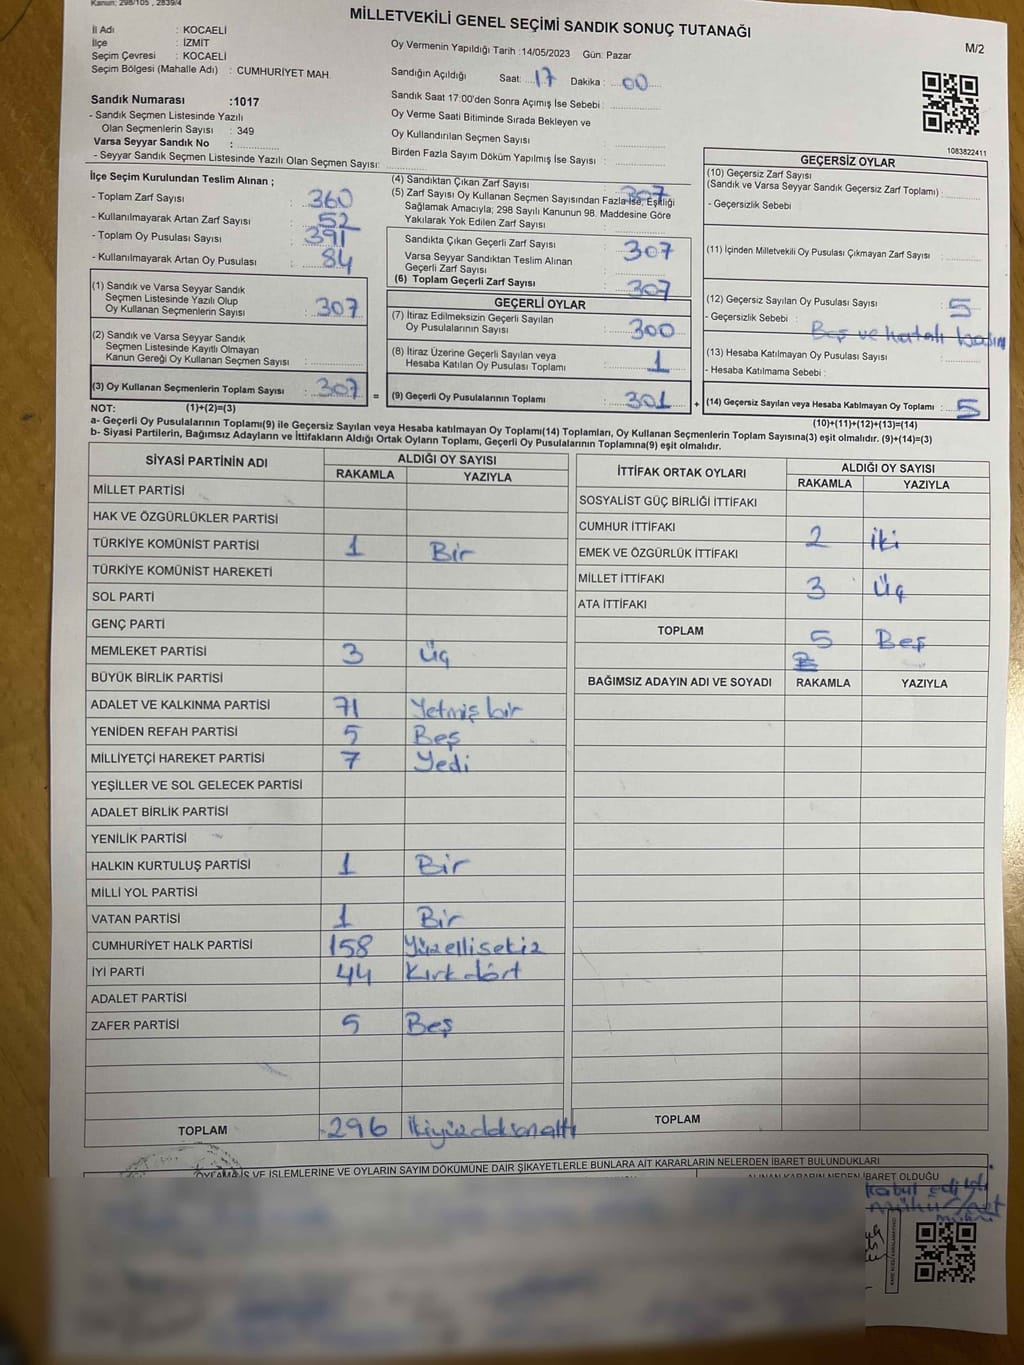 Kanun; 298/105 , 2839/4
MİLLETVEKİLİ GENEL SEÇİMİ SANDIK SONUÇ TUTANAĞI
M/2
İl Adı : KOCAELİ
İlçe : İZMİT
Seçim Çevresi : KOCAELİ
Seçim Bölgesi (Mahalle Adı) : CUMHURİYET MAH.
Sandık Numarası :1017
- Sandık Seçmen Listesinde Yazılı
Olan Seçmenlerin Sayısı : 349
Varsa Seyyar Sandık No :
- Seyyar Sandık Seçmen Listesinde Yazılı Olan Seçmen Sayısı:
Oy Vermenin Yapıldığı Tarih :14/05/2023 Gün: Pazar
Sandığın Açıldığı Saat: 17 Dakika : 00
Sandık Saat 17:00'den Sonra Açımış İse Sebebi :
Oy Verme Saati Bitiminde Sırada Bekleyen ve
Oy Kullandırılan Seçmen Sayısı :
Birden Fazla Sayım Döküm Yapılmış İse Sayısı :
1083822411
İlçe Seçim Kurulundan Teslim Alınan ;
- Toplam Zarf Sayısı : 360
- Kullanılmayarak Artan Zarf Sayısı : 52
- Toplam Oy Pusulası Sayısı : 391
- Kullanılmayarak Artan Oy Pusulası : 84
(1) Sandık ve Varsa Seyyar Sandık
Seçmen Listesinde Yazılı Olup
Oy Kullanan Seçmenlerin Sayısı : 307
(2) Sandık ve Varsa Seyyar Sandık
Seçmen Listesinde Kayıtlı Olmayan
Kanun Gereği Oy Kullanan Seçmen Sayısı :
(3) Oy Kullanan Seçmenlerin Toplam Sayısı : 307
(4) Sandıktan Çıkan Zarf Sayısı : 307
(5) Zarf Sayısı Oy Kullanan Seçmen Sayısından Fazla İse, Eşitliği
Sağlamak Amacıyla; 298 Sayılı Kanunun 98. Maddesine Göre
Yakılarak Yok Edilen Zarf Sayısı :
Sandıkta Çıkan Geçerli Zarf Sayısı : 307
Varsa Seyyar Sandıktan Teslim Alınan
Geçerli Zarf Sayısı :
(6) Toplam Geçerli Zarf Sayısı : 307
GEÇERLİ OYLAR
(7) İtiraz Edilmeksizin Geçerli Sayılan
Oy Pusulalarının Sayısı : 300
(8) İtiraz Üzerine Geçerli Sayılan veya
Hesaba Katılan Oy Pusulası Toplamı : 1
= (9) Geçerli Oy Pusulalarının Toplamı : 301
GEÇERSİZ OYLAR
(10) Geçersiz Zarf Sayısı
(Sandık ve Varsa Seyyar Sandık Geçersiz Zarf Toplamı) :
- Geçersizlik Sebebi
(11) İçinden Milletvekili Oy Pusulası Çıkmayan Zarf Sayısı :
(12) Geçersiz Sayılan Oy Pusulası Sayısı : 5
- Geçersizlik Sebebi : Boş ve hatalı basım
(13) Hesaba Katılmayan Oy Pusulası Sayısı :
- Hesaba Katılmama Sebebi :
+ (14) Geçersiz Sayılan veya Hesaba Katılmayan Oy Toplamı : 5
NOT: (1)+(2)=(3)
(10)+(11)+(12)+(13)=(14)
a- Geçerli Oy Pusulaları Toplamı(9) ile Geçersiz Sayılan veya Hesaba katılmayan Oy Toplamı(14) Toplamları, Oy Kullanan Seçmenlerin Toplam Sayısına(3) eşit olmalıdır. (9)+(14)=(3)
b- Siyasi Partilerin, Bağımsız Adayların ve İttifakların Aldığı Ortak Oyların Toplamı, Geçerli Oy Pusulalarının Toplamına(9) eşit olmalıdır.
SİYASİ PARTİNİN ADI ALDIĞI OY SAYISI
RAKAMLA YAZIYLA
MİLLET PARTİSİ
HAK VE ÖZGÜRLÜKLER PARTİSİ
TÜRKİYE KOMÜNİST PARTİSİ 1 Bir
TÜRKİYE KOMÜNİST HAREKETİ
SOL PARTİ
GENÇ PARTİ
MEMLEKET PARTİSİ 3 Üç
BÜYÜK BİRLİK PARTİSİ
ADALET VE KALKINMA PARTİSİ 71 Yetmiş bir
YENİDEN REFAH PARTİSİ 5 Beş
MİLLİYETÇİ HAREKET PARTİSİ 7 Yedi
YEŞİLLER VE SOL GELECEK PARTİSİ
ADALET BİRLİK PARTİSİ
YENİLİK PARTİSİ
HALKIN KURTULUŞ PARTİSİ 1 Bir
MİLLİ YOL PARTİSİ
VATAN PARTİSİ 1 Bir
CUMHURİYET HALK PARTİSİ 158 Yüzellisekiz
İYİ PARTİ 44 Kırk dört
ADALET PARTİSİ
ZAFER PARTİSİ 5 Beş
TOPLAM 296 İkiyüzdoksanaltı
İTTİFAK ORTAK OYLARI ALDIĞI OY SAYISI
RAKAMLA YAZIYLA
SOSYALİST GÜÇ BİRLİĞİ İTTİFAKI
CUMHUR İTTİFAKI 2 İki
EMEK VE ÖZGÜRLÜK İTTİFAKI
MİLLET İTTİFAKI 3 Üç
ATA İTTİFAKI
TOPLAM 5 Beş
BAĞIMSIZ ADAYIN ADI VE SOYADI RAKAMLA YAZIYLA
TOPLAM
OYLAMA İŞ VE İŞLEMLERİNE VE OYLARIN SAYIM DÖKÜMÜNE DAİR ŞİKAYETLERLE BUNLARA AİT KARARLARIN NELERDEN İBARET BULUNDUKLARI
ALINAN KARARIN NEDEN İBARET OLDUĞU
kabul edildi